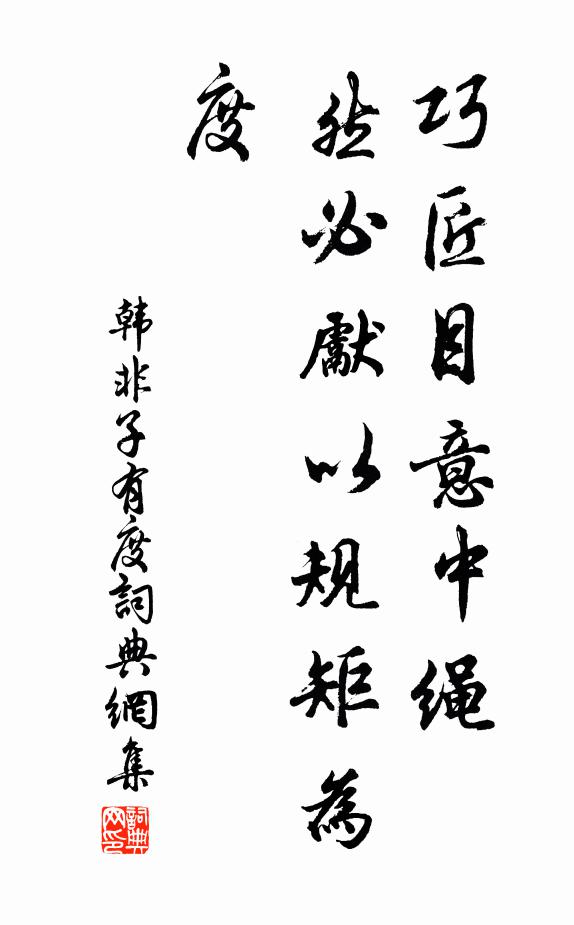 巧匠目意中绳
然必獻以規矩為
度
韩非子有度詞典網集
詞典网印